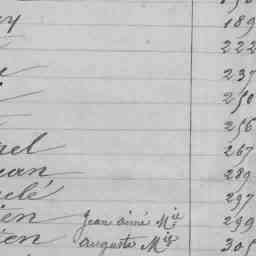 y 189
222
237
250
256
el 267
ean 289
elé 297
ien Jean aimé Mie 299
ien auguste Mie 305